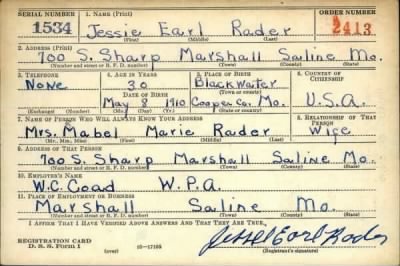 SERIAL NUMBER 1. NAME (Print) ORDER NUMBER
1534 Jessie Earl Rader 2413
(First) (Middle) (Last)
2. ADDRESS (Print)
700 S. Sharp Marshall Saline Mo.
(Number and street or R. F. D. number) (Town) (County) (State)
3. TELEPHONE 4. AGE IN YEARS 5. PLACE OF BIRTH 6. COUNTRY OF CITIZENSHIP
None 30 Blackwater
DATE OF BIRTH (Town or county)
May 8 1910 Cooper co. Mo. U.S.A.
(Exchange) (Number) (Mo.) (Day) (Yr.) (State or country)
7. NAME OF PERSON WHO WILL ALWAYS KNOW YOUR ADDRESS 8. RELATIONSHIP OF THAT PERSON
Mrs. Mabel Marie Rader Wife
(Mr., Mrs., Miss) (First) (Middle) (Last)
9. ADDRESS OF THAT PERSON
700 S. Sharp Marshall Saline Mo.
(Number and street or R. F. D. number) (Town) (County) (State)
10. EMPLOYER'S NAME
W.C. Coad W.P.A.
11. PLACE OF EMPLOYMENT OR BUSINESS
Marshall Saline Mo.
(Number and street or R. F. D. number) (Town) (County) (State)
I AFFIRM THAT I HAVE VERIFIED ABOVE ANSWERS AND THAT THEY ARE TRUE.
REGISTRATION CARD
D. S. S. FORM 1 (over) 16—17105 (Registrant's signature)
Jessie Earl Rader